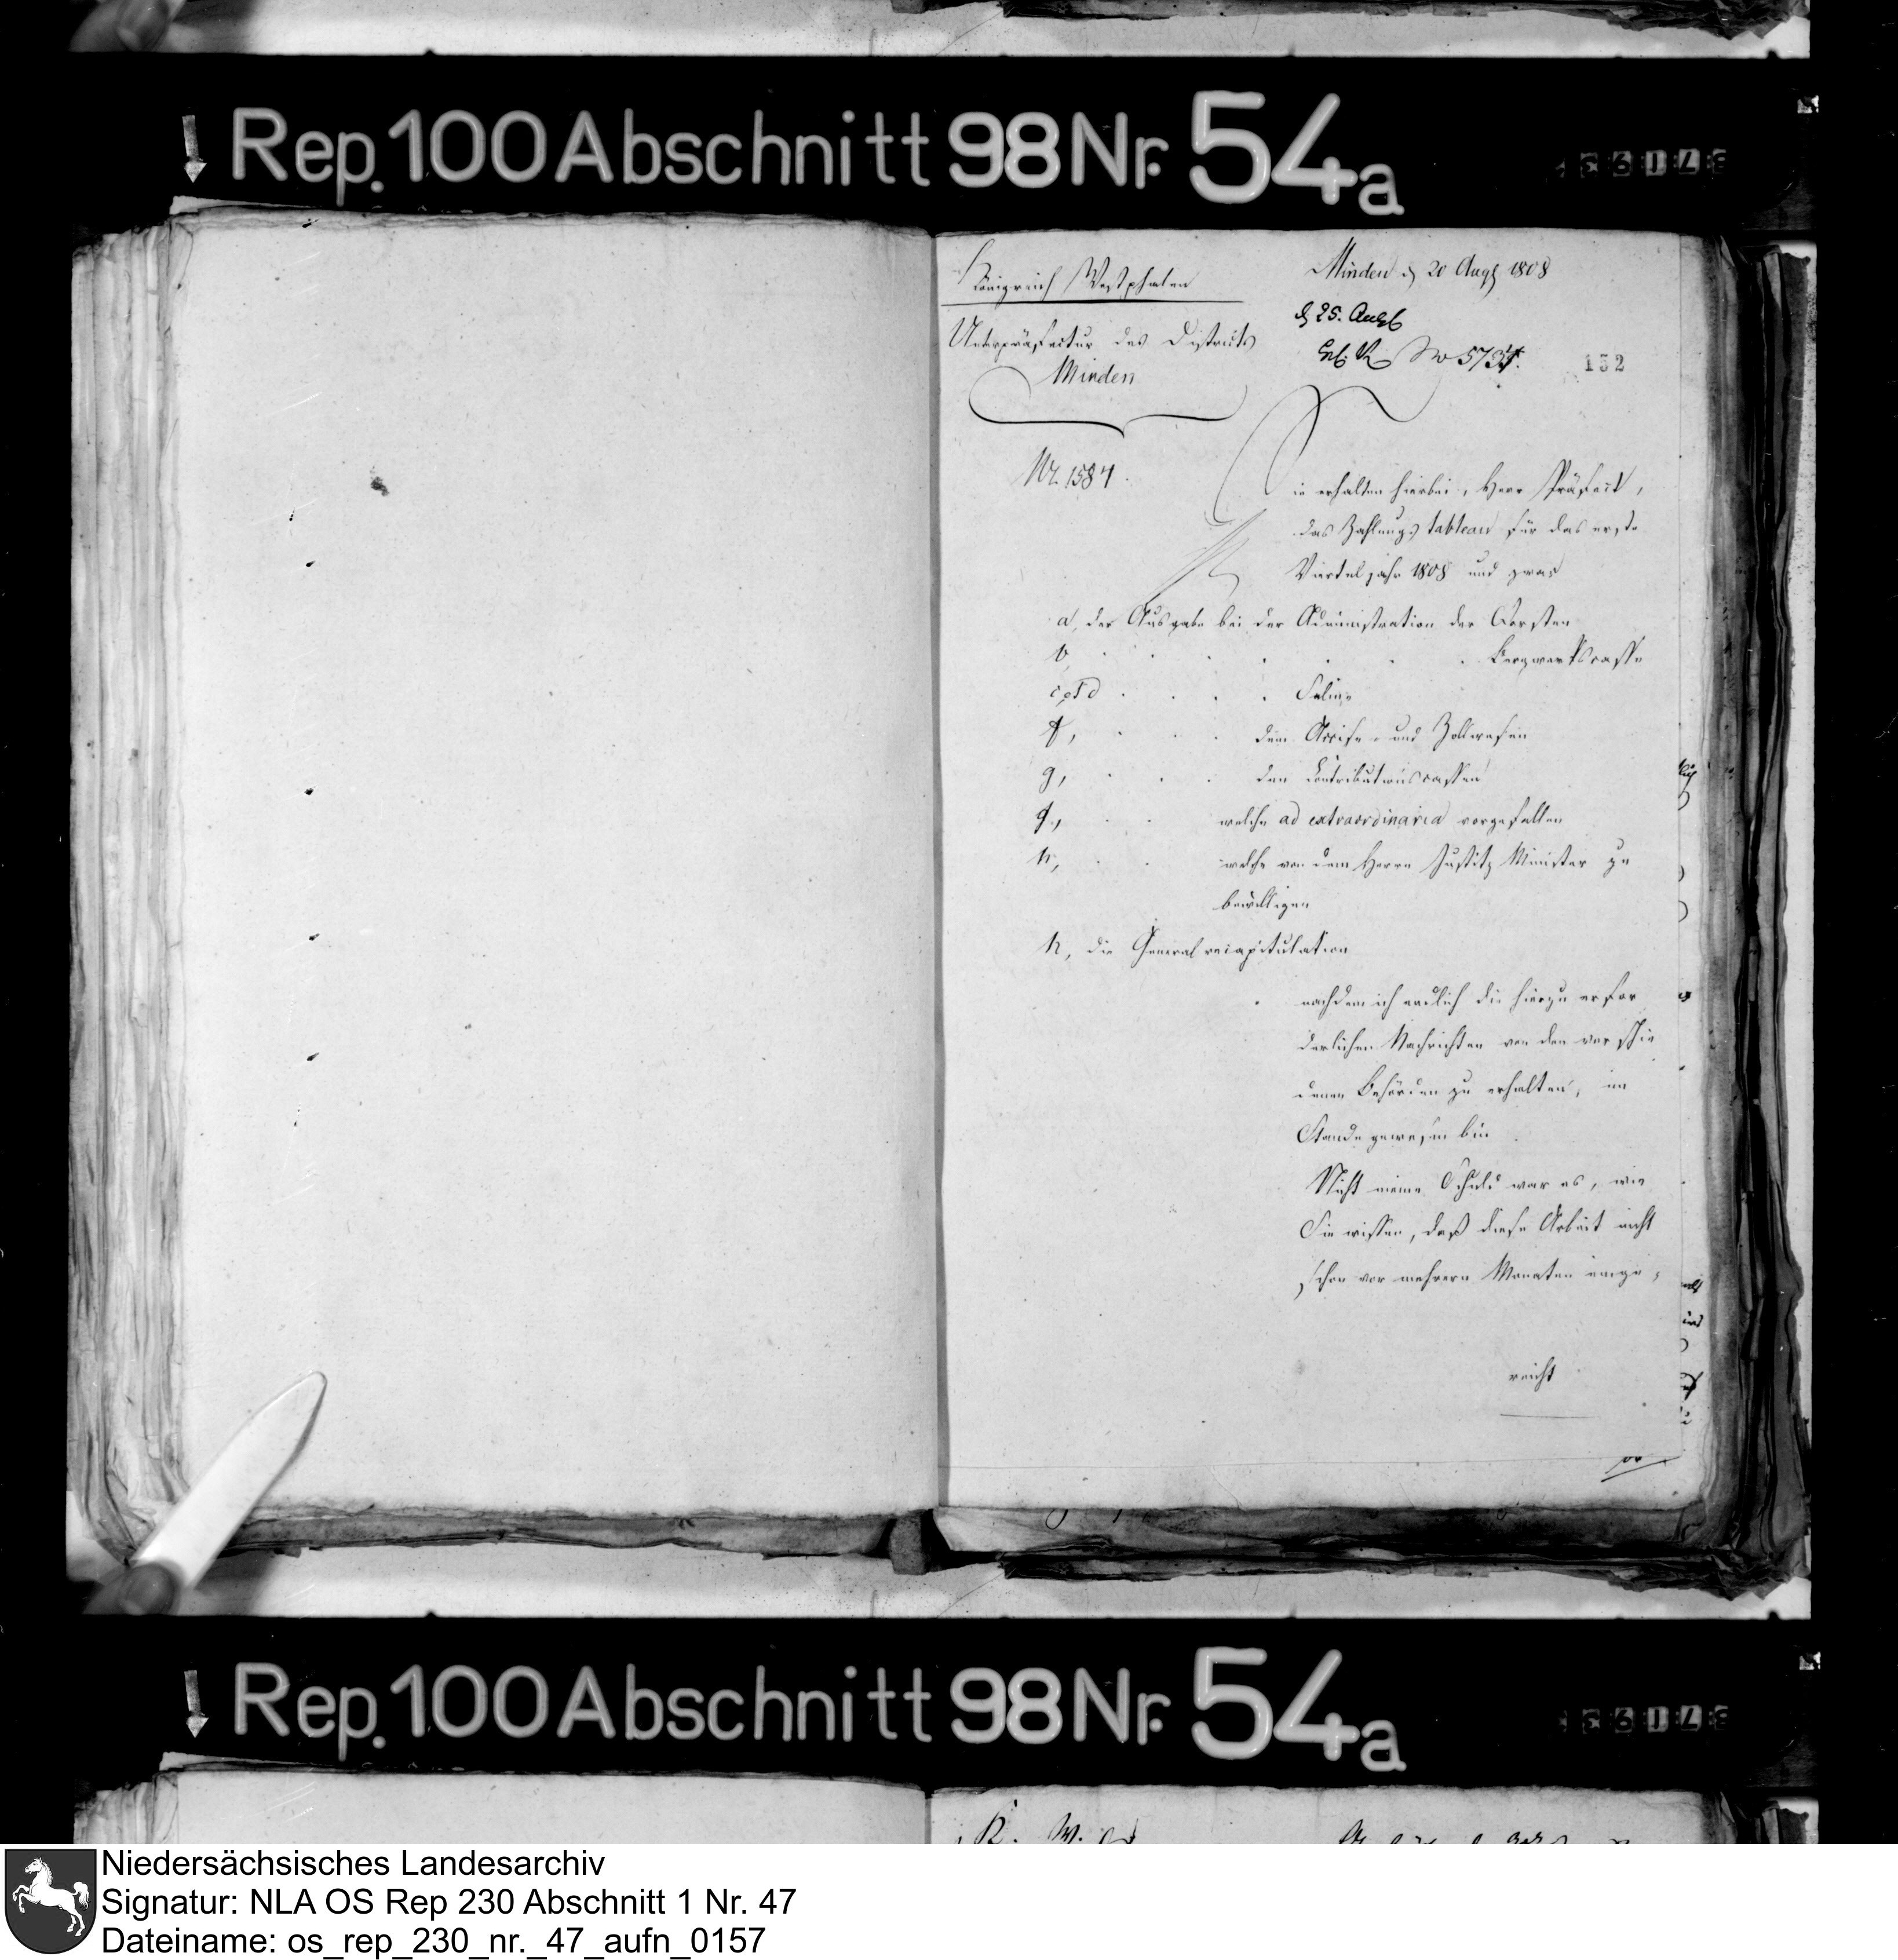 Rep. 100 Abschnitt 98 Nr. 54a
Königreich Westphalen
Unterpräfectur des Districts
Minden
Minden d 20 Aug 1808
d 25. Aug
No 573
132
Nr. 1584.
Sie erhalten hierbei, Herr Präfect,
das Zahlungstableau für das erste
Vierteljahr 1808 und zwar
a, der Ausgabe bei der Administration der Forsten
b, Bergwerkscasse
c et d Saline
f, dem Accise- und Zollwesen
g, den Contributionscassen
g, welche ad extraordinaria vorgefallen
h, welche von dem Herrn Justitz Minister zu
bewilligen
h, die Generalrecapitulation
nachdem ich endlich die hierzu erfor
derlichen Nachrichten von den verschie
denen Behörden zu erhalten, im
Stande gewesen bin.
Nicht meine Schuld war es, wie
Sie wissen, daß diese Arbeit nicht
schon vor mehrern Monaten einge,
reicht
Rep. 100 Abschnitt 98 Nr. 54a
Niedersächsisches Landesarchiv
Signatur: NLA OS Rep 230 Abschnitt 1 Nr. 47
Dateiname: os_rep_230_nr._47_aufn_0157